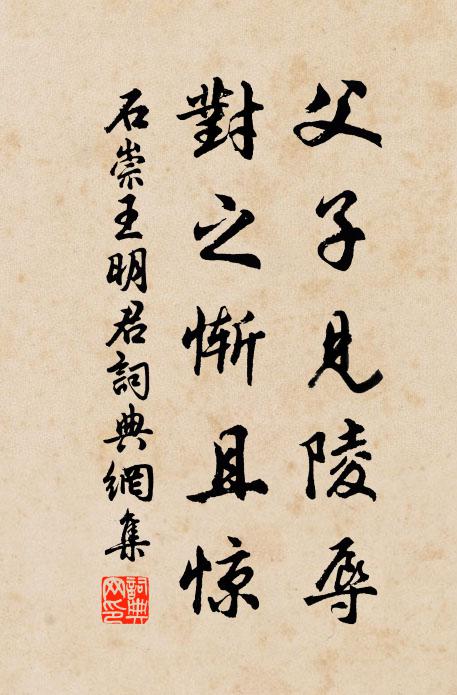 父子見陵辱
對之慚且惊
石崇王明君詞典網集
詞典
网印